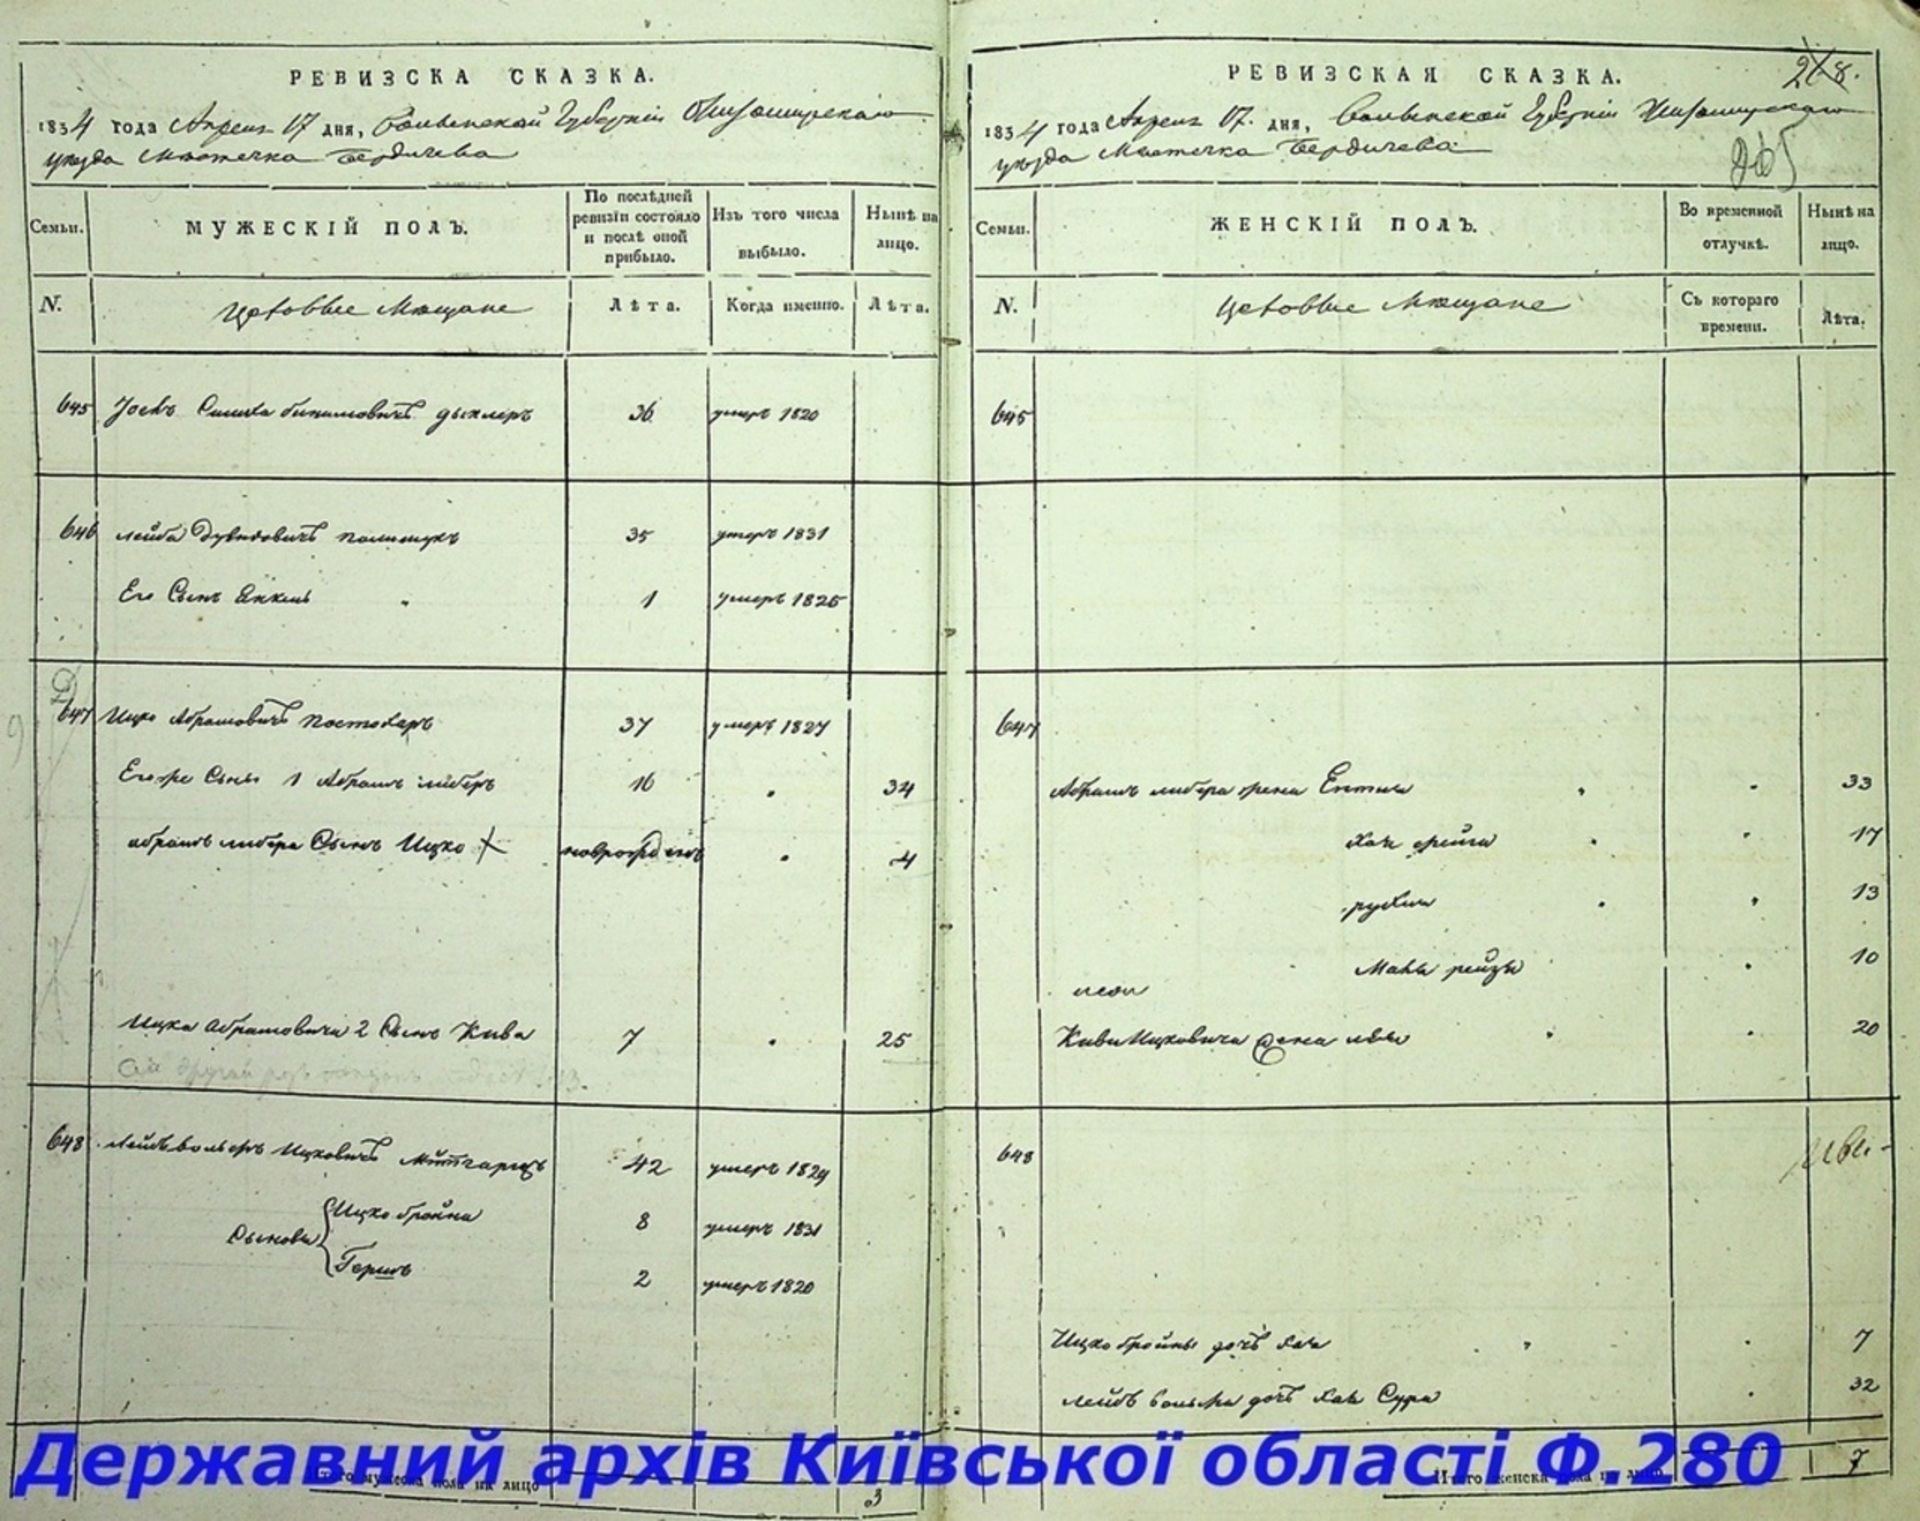 РЕВИЗСКА СКАЗКА.
1834 года Апреля 17 дня, Волынской Губерніи Житомирскаго
уезда Местечка Бердичева
Семьи.
МУЖЕСКІЙ ПОЛЪ.
По послѣдней ревизіи состояло и послѣ оной прибыло.
Изъ того числа выбыло.
Нынѣ на лицо.
N.
Цеховые Мещане
Лѣта.
Когда именно.
Лѣта.
645 Іось Бинимовичъ 36 умеръ 1820
646 Лейба Дувидовичъ Полищукъ 35 умеръ 1831
Его Сынъ Янкель 1 умеръ 1825
647 Ицко Абрамовичъ 37 умеръ 1827
Егоже Сыны 1 Абрамъ Либеръ 16 34
Абрамъ Либера Сынъ Ицко новорожденъ 4
Ицка Абрамовича 2 Сынъ Кива 7 25
648 Ицковичъ 42 умеръ 1829
Сыновья
Ицко Бройна 8 умеръ 1831
Гершъ 2 умеръ 1820
Итого мужеска пола на лицо 3
РЕВИЗСКАЯ СКАЗКА.
8.
265
1834 года Апреля 17. дня, Волынской Губерніи Житомирскаго
уезда Местечка Бердичева
Семьи.
ЖЕНСКІЙ ПОЛЪ.
Во временной отлучкѣ.
Нынѣ на лицо.
N.
Цеховые Мещане
Съ котораго времени.
Лѣта.
645
647
Абрамъ Либера жена Ентля 33
Хая 17
Рухля 13
Рейзя 10
Киви Ицковича жена 20
648
Ицко Бройны дочь Хая 7
дочь Хая Сура 32
Итого женска пола на лицо 7
Державний архів Київської області Ф.280